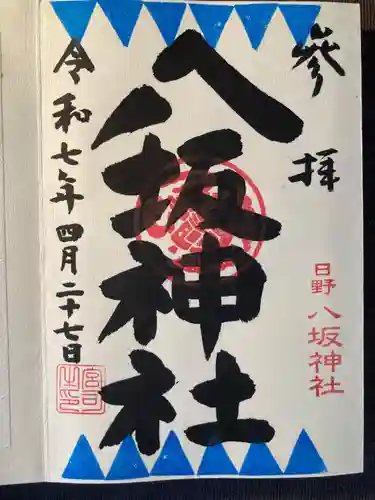 參拝
八坂神社
日野 八坂神社
令和七年四月二十七日
宮司之印